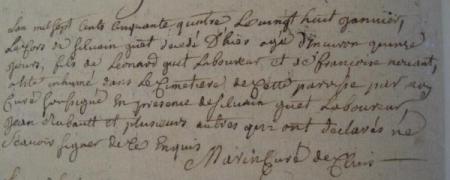 Lan mil sept cents cinquante quatre le vingt huit janvier,
Le Cors de Siluain guet décédé D'hier agé d'Environ quinze
jours, fils de Léonard guet Laboureur et de françoise
a été inhumé dans le Cimetiere de Cette paroisse par moy
Curé soussigné En presence de Siluain guet Laboureur
Jean Rubault et plusieurs autres qui ont declarés ne
Scavoir signer de ce Enquis
Marin Curé de